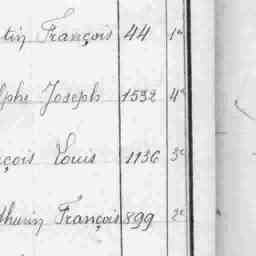 tin François 44 1e
lphe Joseph 1532 4e
çois Louis 1136 3e
thurin François 899 2e